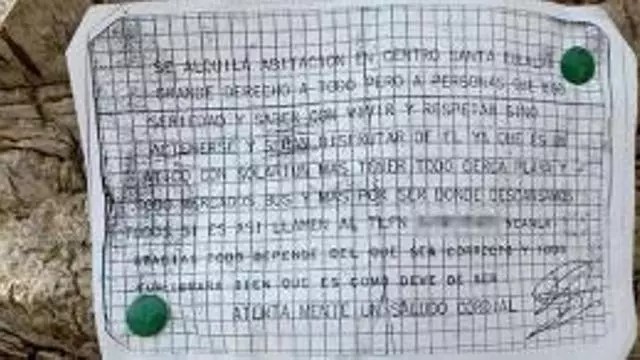 SE ALQUILA ABITACION EN CENTRO SANTA EULALIA
GRANDE DERECHO A TODO PERO A PERSONAS QUE
SERIEDAD Y SABER CON VIVIR Y RESPETAR SINO
ATENERSE Y DISFRUTAR DE EL YA QUE ES
ATICO CON SOLARIUM MAS TENER TODO CERCA PLAYA Y
TODO MERCADOS BUS Y MAS POR SER DONDE DESCANSAMOS
TODOS SI ES ASI LLAMEN AL TLFN
GRACIAS TODO DEPENDE DEL QUE SER CORRECTO Y TODO
FUNCIONARA BIEN QUE ES COMO DEVE DE SER
ATENTA MENTE UN SALUDO CORDIAL